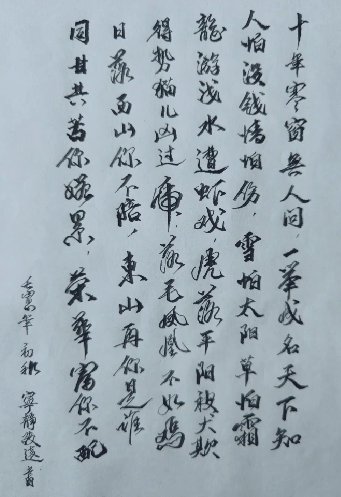 十年寒窗無人问，一举成名天下知
人怕没钱情怕伤，雪怕太阳草怕霜
龍游浅水遭虾戏，虎落平阳被犬欺
得势猫儿凶过虎，落毛凤凰不如鸡
日落西山你不陪，東山再你是谁
同甘共苦你嫌累，荣華富你不配
壬寅年初秋 寧静致远书